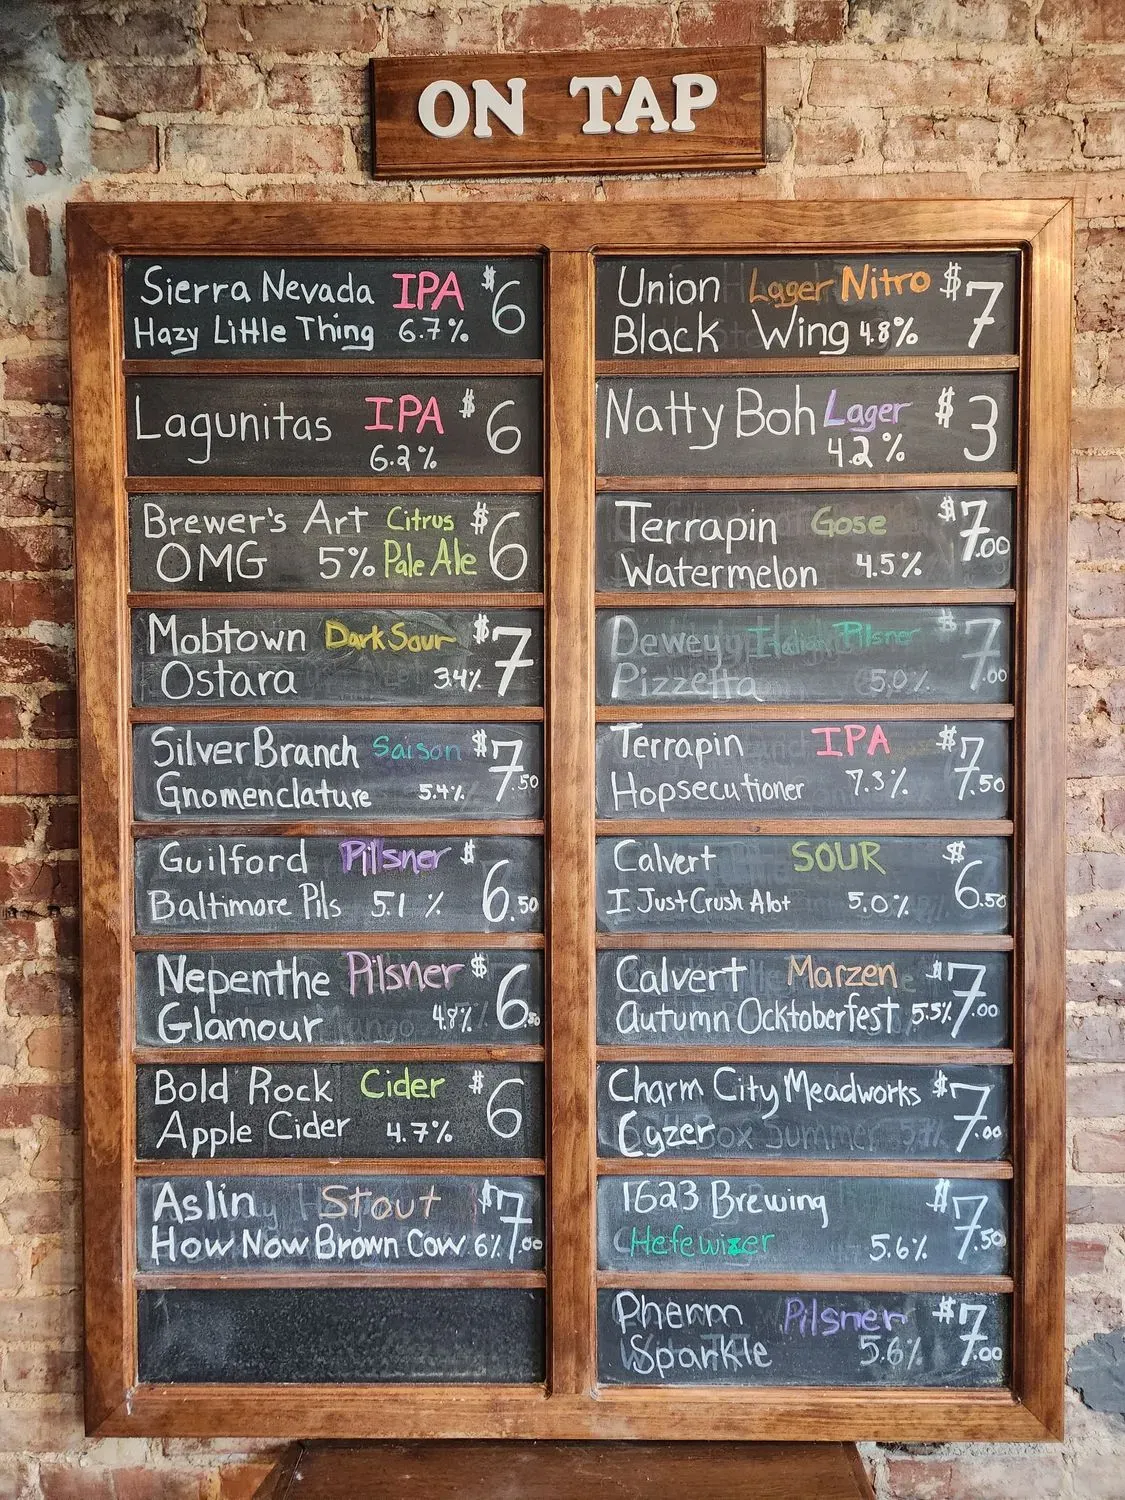 ON TAP
Sierra Nevada IPA $6
Hazy Little Thing 6.7%
Lagunitas IPA $6
6.2%
Brewer's Art Citrus $6
OMG 5% Pale Ale
Mobtown Dark Sour $7
Ostara 3.4%
Silver Branch Saison $7.50
Gnomenclature 5.4%
Guilford Pilsner $6.50
Baltimore Pils 5.1%
Nepenthe Pilsner $6.50
Glamour 4.8%
Bold Rock Cider $6
Apple Cider 4.7%
Aslin Stout $7.00
How Now Brown Cow 6%
Union Lager Nitro $7
Black Wing 4.8%
Natty Boh Lager $3
4.2%
Terrapin Gose $7.00
Watermelon 4.5%
Dewey Italian Pilsner $7.00
Pizzetta 5.0%
Terrapin IPA $7.50
Hopsecutioner 7.3%
Calvert SOUR $6.50
I Just Crush Alot 5.0%
Calvert Marzen $7.00
Autumn Ocktoberfest 5.5%
Charm City Meadworks $7.00
Cyzer
1623 Brewing $7.50
Hefewizer 5.6%
Pherm Pilsner $7.00
Sparkle 5.6%